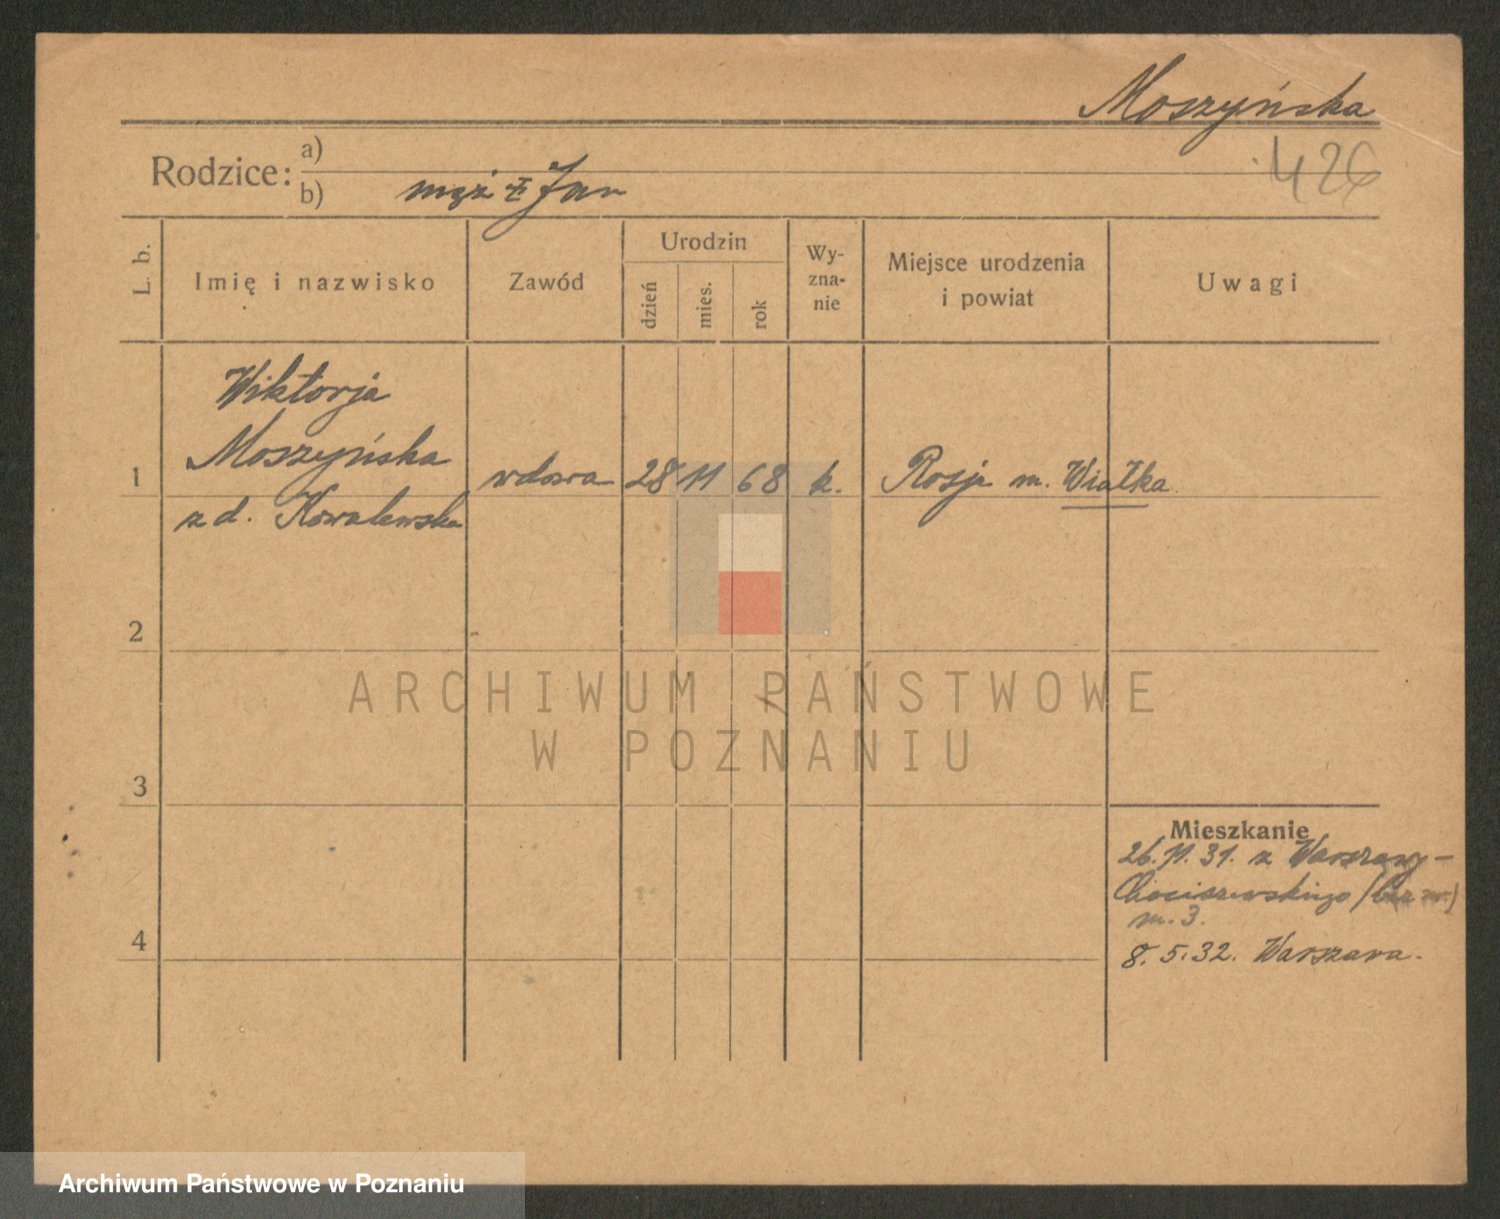 Moszyńska
426
Rodzice: a)
b) mąż ŻI Jan
L. b.
Imię i nazwisko
Zawód
Urodzin
dzień
mies.
rok
Wy-
zna-
nie
Miejsce urodzenia
i powiat
Uwagi
Wiktorja
Moszyńska
1 wdowa 28 11 68 k. Rosja m. Wiatka
z d. Kowalewska
2
3
4
Mieszkanie
26.11.31. z Warszawy –
Chociszewskiego
m. 3.
8.5.32. Warszawa.
ARCHIWUM PAŃSTWOWE
W POZNANIU
Archiwum Państwowe w Poznaniu